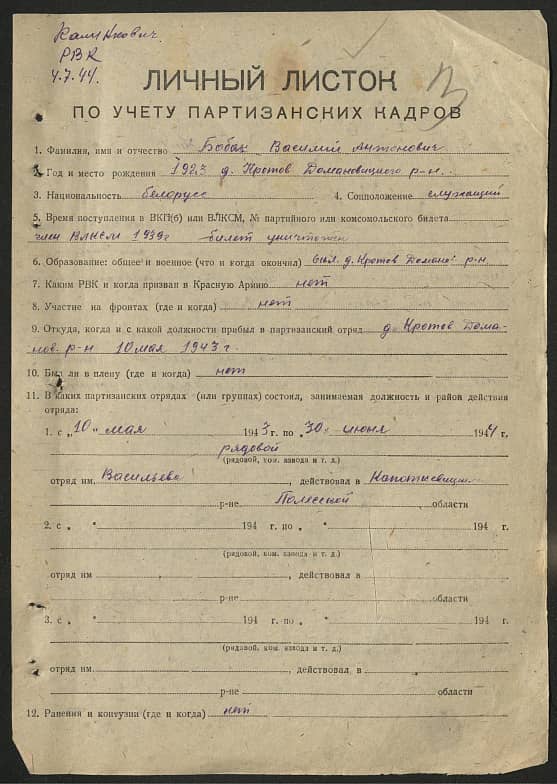 Калинкович.
РВК
4.7.44.
ЛИЧНЫЙ ЛИСТОК
ПО УЧЕТУ ПАРТИЗАНСКИХ КАДРОВ
1. Фамилия, имя и отчество Бабак Василий Антонович
2. Год и место рождения 1923 д. Кротов Домановицкого р-н.
3. Национальность белорусс 4. Соцположение служащий
5. Время поступления в ВКП(б) или ВЛКСМ, № партийного или комсомольского билета
член ВЛКСМ 1939г билет уничтожен
6. Образование: общее и военное (что и когда окончил) 6кл. д. Кротов Доманов. р-н
7. Каким РВК и когда призван в Красную Армию нет
8. Участие на фронтах (где и когда) нет
9. Откуда, когда и с какой должности прибыл в партизанский отряд д. Кротов Дома-
нов. р-н 10 мая 1943 г.
10. Был ли в плену (где и когда) нет
11. В каких партизанских отрядах (или группах) состоял, занимаемая должность и район действия
отряда:
1. с „10" мая 1943 г. по „30" июня 1944 г.
рядовой
(рядовой, ком. взвода и т. д.)
отряд им. Васильева, действовал в
р-не Полесской области
2. с „ " 194 г. по „ " 194 г.
(рядовой, ком. взвода и т. д.)
отряд им , действовал в
р-не области
3. с „ " 194 г. по „ " 194 г.
(рядовой, ком. взвода и т. д.)
отряд им. , действовал в
р-не области
12. Ранения и контузии (где и когда) нет